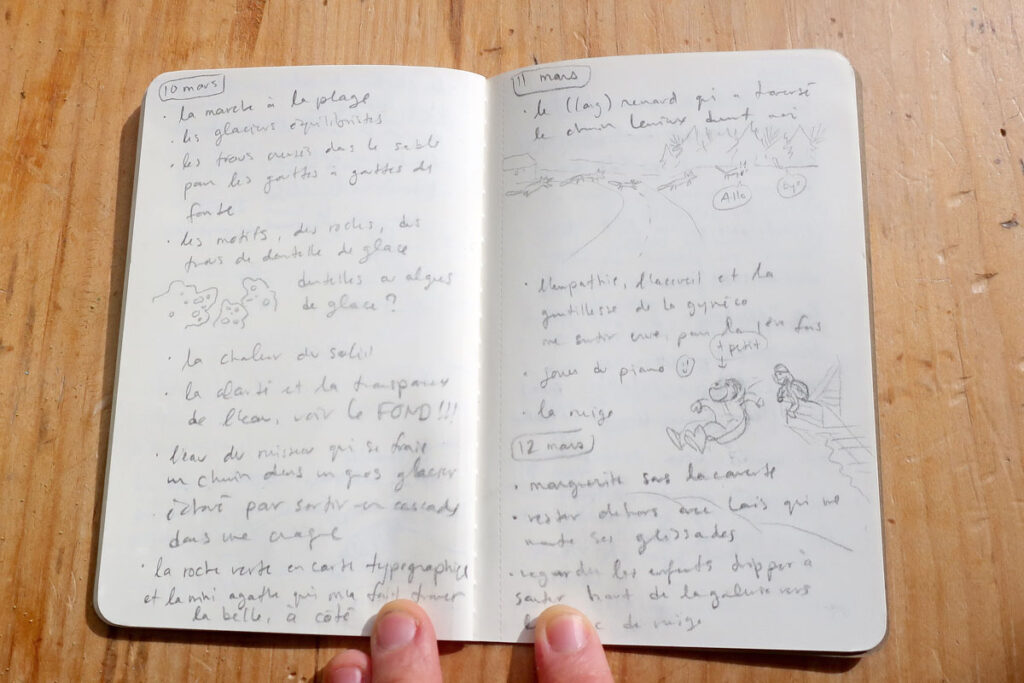 10 mars
· la marche à la plage
· les glaciers équilibristes
· les trous creusés dans le sable
par les gouttes à gouttes de
fonte
· les motifs, des roches, des
trous de dentelle de glace
dentelles ou algues
de glace?
· la chaleur du soleil
· la clarté et la transparence
de l'eau, voir le FOND!!!
· l'eau du ruisseau qui se fraie
un chemin dans un gros glacier
par sortir en cascades
dans une craque
· la roche verte en carte typographique
et la mini agathe qui m'a fait trouver
la belle, à côté
11 mars
· le renard qui a traversé
le chemin devant moi
Allo
· l'empathie, l'accueil et la
gentillesse de la gynéco
me sentir pour la fois
+ petit
· jouer du piano
· la neige
12 mars
· marguerite sans la couverte
· rester dehors avec Laïs qui me
monte ses glissades
· regarder les enfants tripper à
sauter haut de la galerie vers
de neige